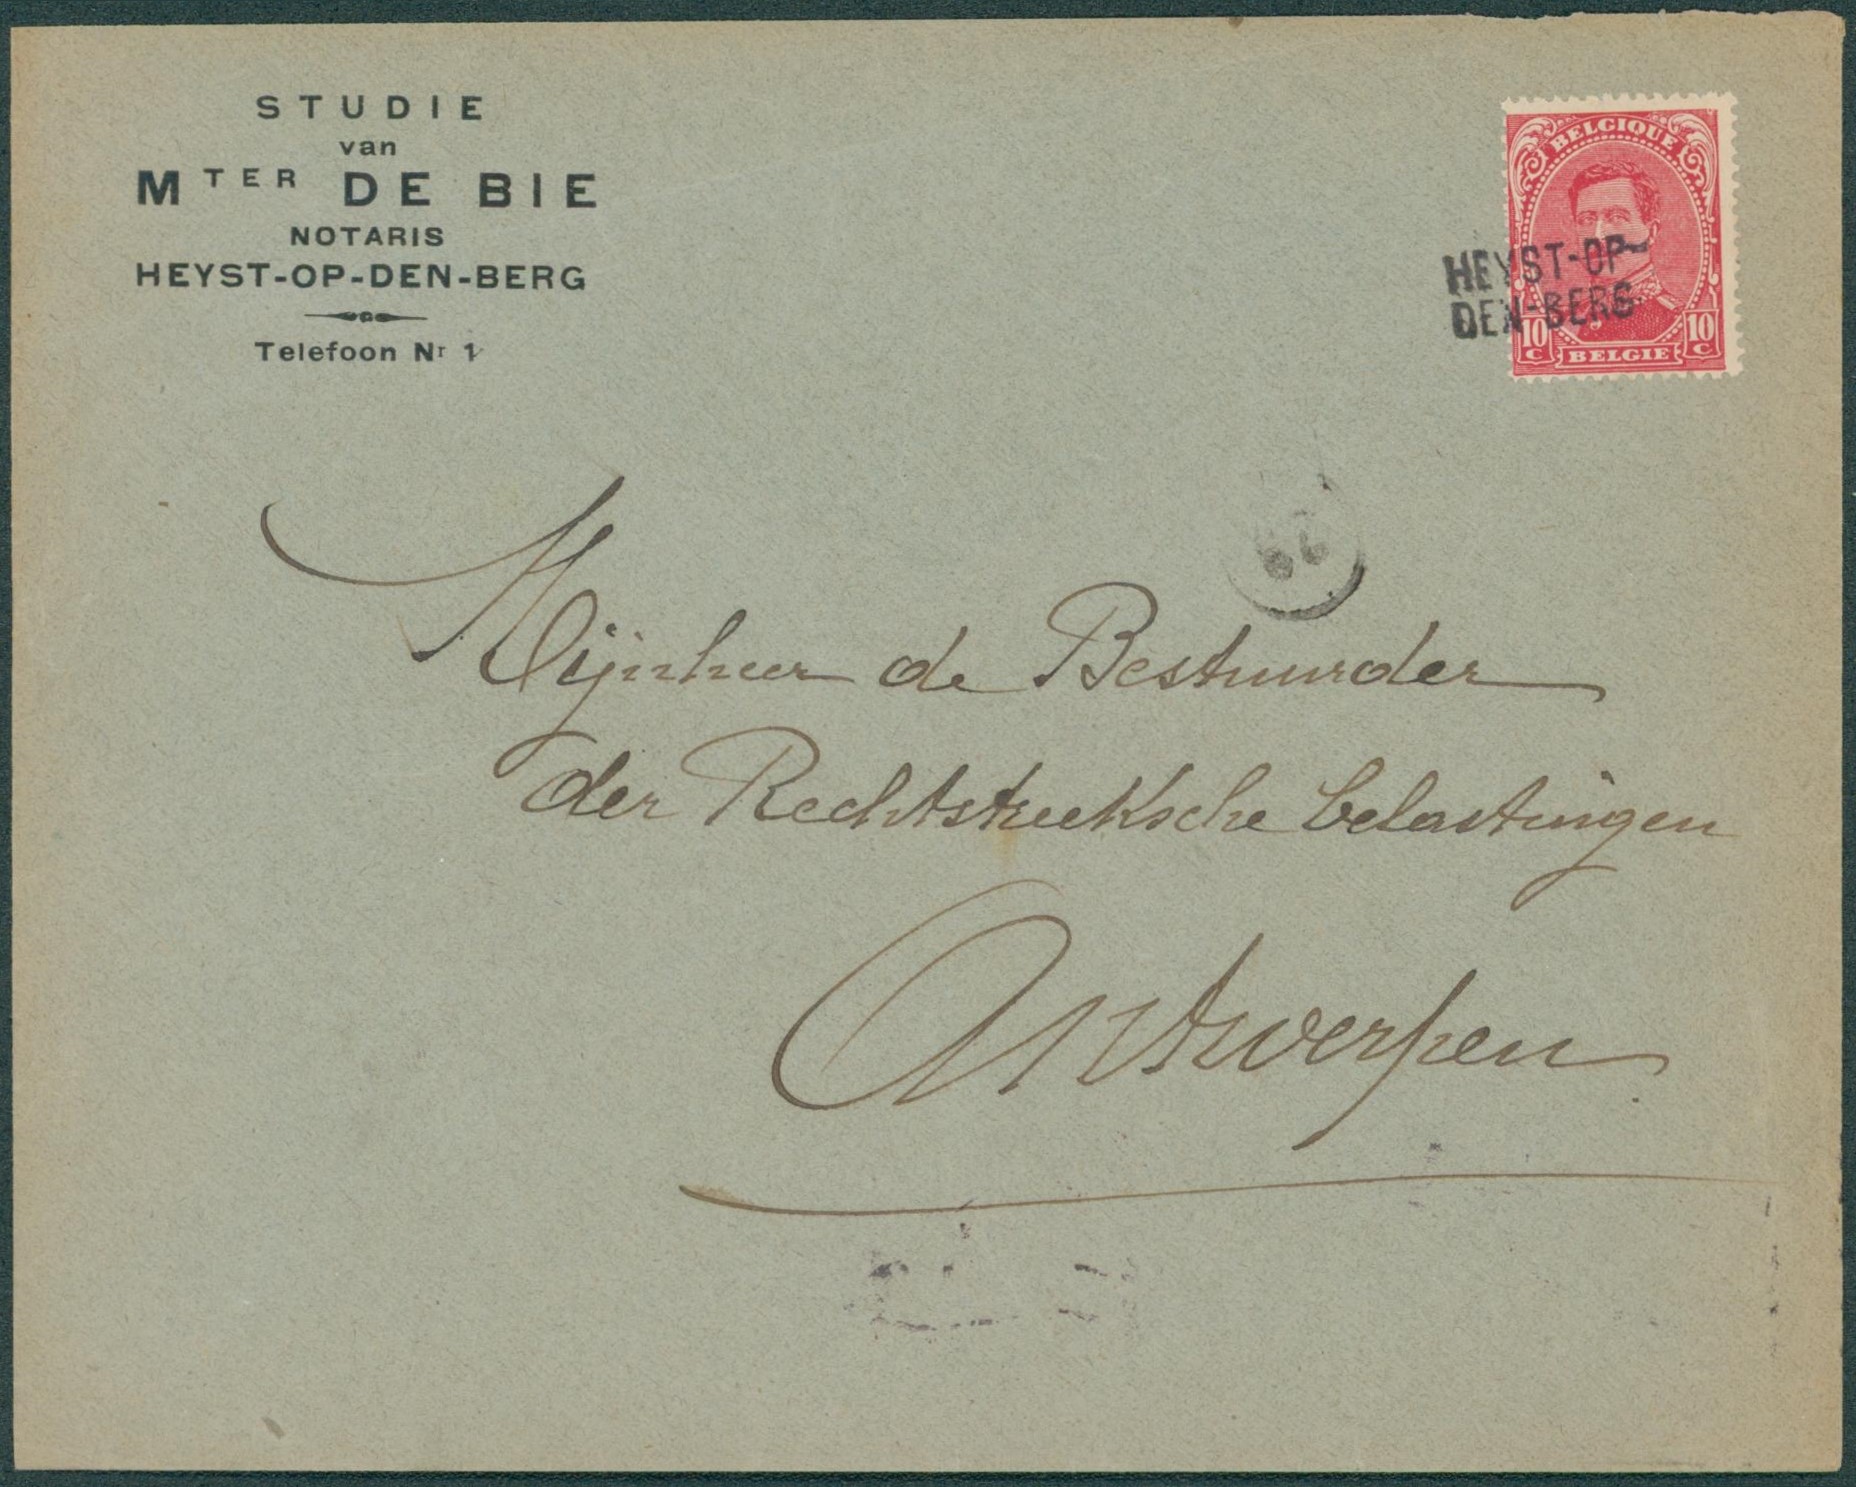 STUDIE
van
MTER DE BIE
NOTARIS
HEYST-OP-DEN-BERG
Telefoon Nr 1
BELGIQUE
HEYST-OP-
DEN-BERG
10 C BELGIE 10 C
Mijnheer de Bestuurder
der Rechtstreeksche belastingen
Antwerpen